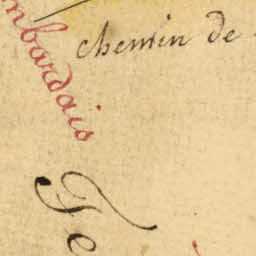 chemin de
mbardais
Te